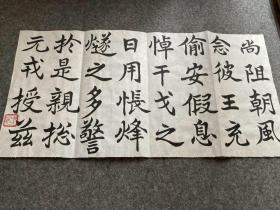 尚阻朝風
念彼王充
偷安假息
悼干戈之
日用悵烽
燧之多警
於是親総
元戎授茲